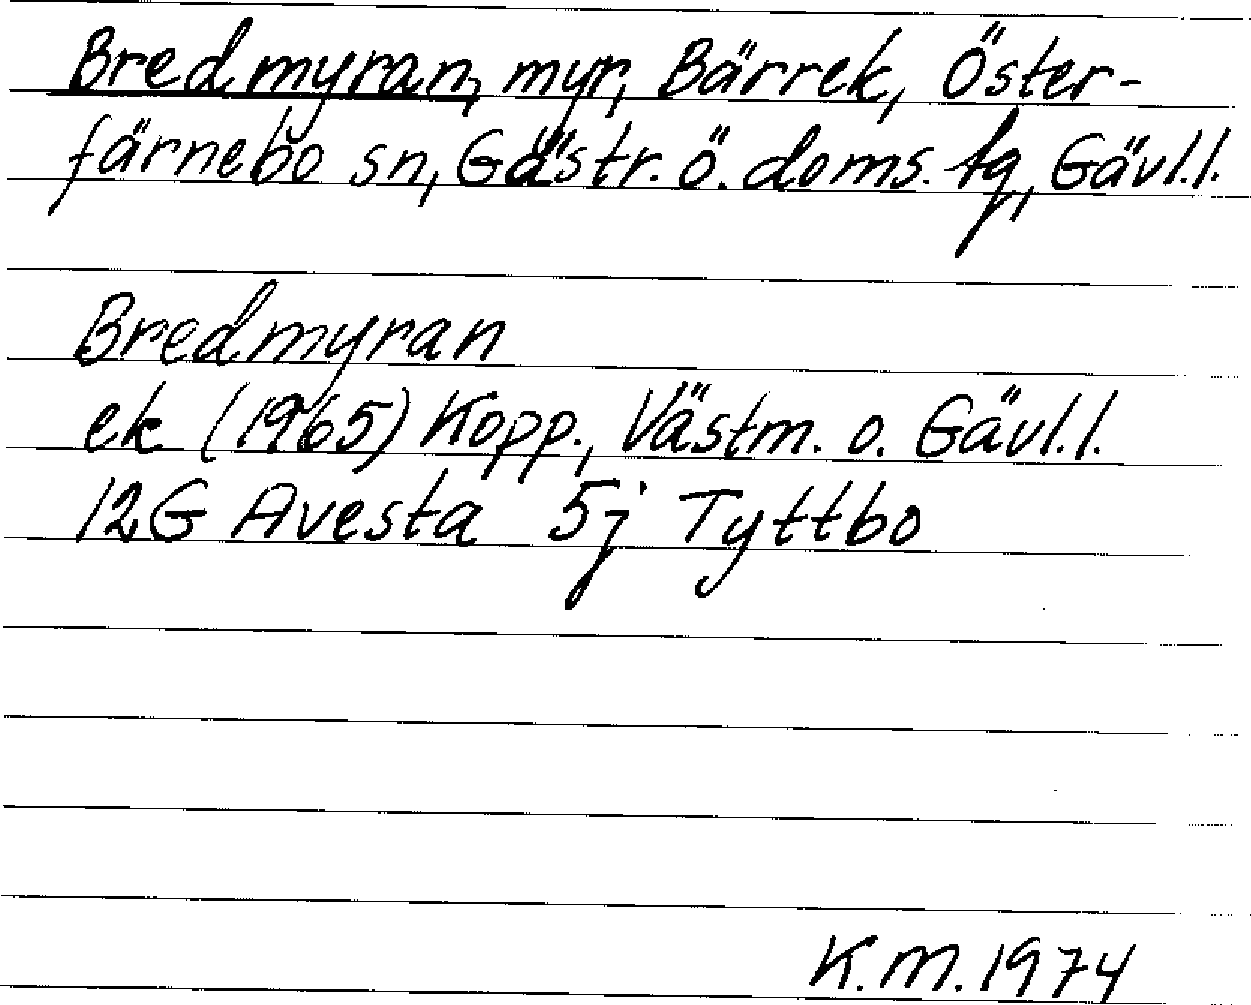 Bredmyran, myr, Bärrek, Öster-
färnebo sn, Gästr. ö. doms. tg, Gävl.l.
Bredmyran
ek (1965) Kopp., Västm. o. Gävl.l.
12G Avesta 5j Tyttbo
K.M. 1974